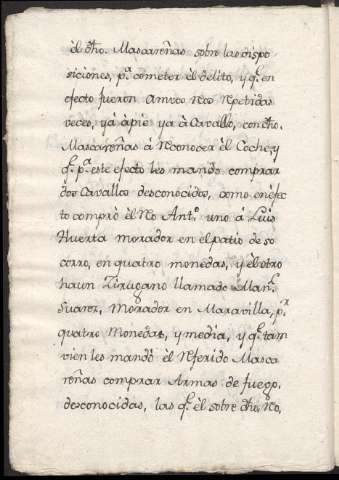 èl dho. Mascareñas sobre las dispo
siciones, pa. cometer èl delito, y qe. en
efecto fueron Amvos Reos Repetidas
veces, yà àpie yà à Cavallo, con dho.
Mascareñas à Reconocer èl Coche, y
qe. pa. este efecto les mandò comprar
dos Cavallos desconocidos, como en èfec
to comprò èl Reo Anto. uno á Luis
Huerta morador en el patio de so
corro, en quatro monedas, y èl otro
ha un Zirugano llamado Manl.
Suarez, Morador en Maravilla, pr.
quatro Monedas, y media, y qe. tam
vien les mandò èl Referido Masca
reñas comprar Armas de fuego,
desconocidas, las qe. èl sobre dho. Reo,